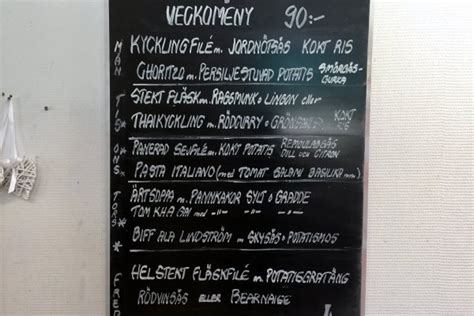 VECKOMENY 90:-
MÅN
KYCKLINGFILÉ m. JORDNÖTSÅS KOKT RIS
CHORITZO m. PERSILJESTUVAD POTATIS SMÖRGÅS-
GURKA
TIS
STEKT FLÄSK m. RAGGMUNK o LINGON eller
THAIKYCKLING m. RÖDCURRY o GRÖNSAKER KOKT
RIS
ONS
PANERAD SEJFILÉ m. KOKT POTATIS REMOULADSÅS
DILL och CITRON
PASTA ITALIANO (med TOMAT SALAMI BASILIKA
TORS
ÄRTSOPPA m. PANNKAKOR SYLT o GRÄDDE
TOM KHA GAI med -"- -"- -"-
BIFF ALA LINDSTRÖM m SKYSÅS o POTATISMOS
FRED
HELSTEKT FLÄSKFILÉ m. POTATISGRATÄNG
RÖDVINSÅS ELLER BEARNAISE